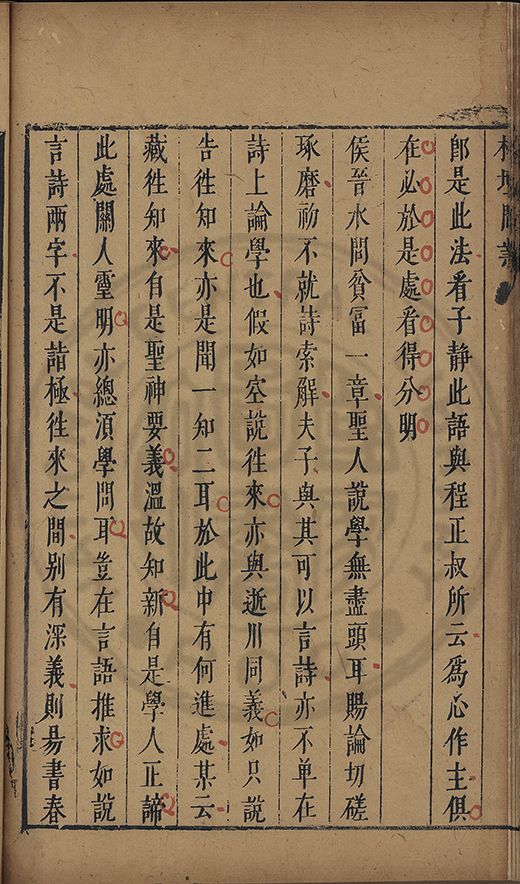 榕壇問業
卽是此法看子靜此語與程正叔所云爲心作主俱
在必於是處看得分明
侯晉水問貧富一章聖人說學無盡頭耳賜論切磋
琢磨初不就詩索解夫子與其可以言詩亦不单在
詩上論學也假如空說徃來亦與逝川同義如只說
告徃知來亦是聞一知二耳於此中有何進處某云
藏徃知來自是聖神要義溫故知新自是學人正諦
此處關人靈明亦總須學問耳豈在言語推求如說
言詩兩字不是詣極徃來之間別有深義則昜書春